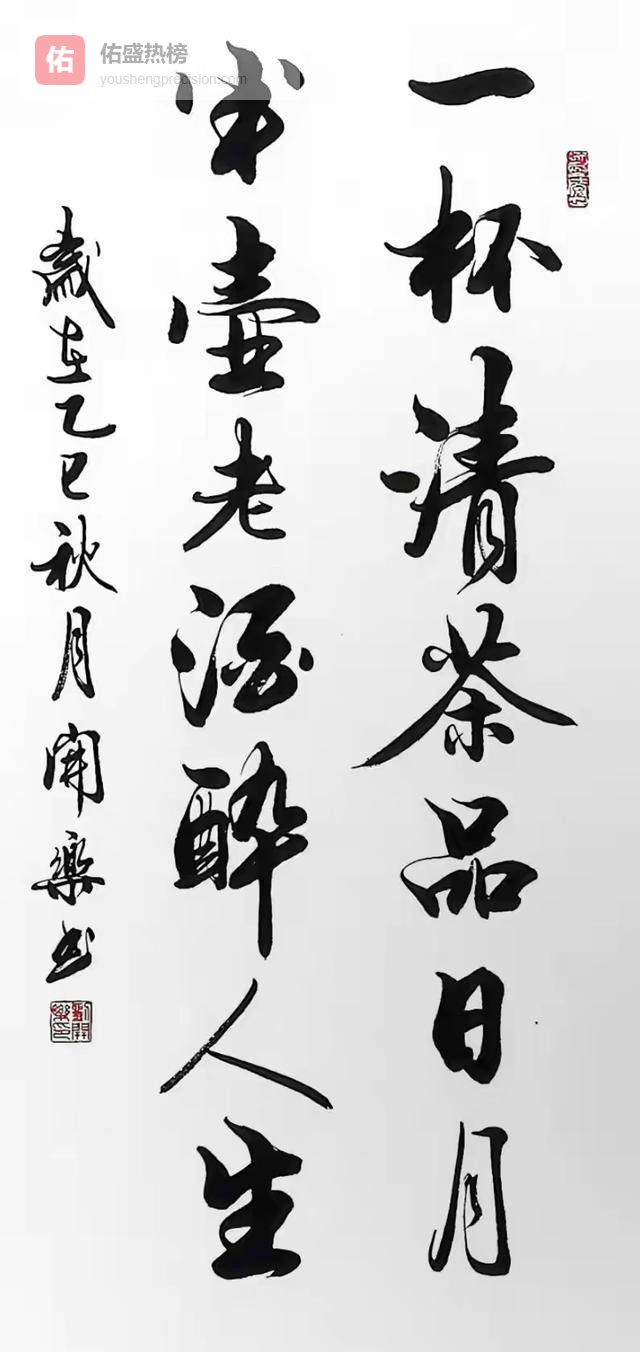 佑
佑盛热榜
youshengprecision.com
一杯清茶品日月
半壶老酒醉人生
歲在乙巳秋月開樂书
劉開樂印